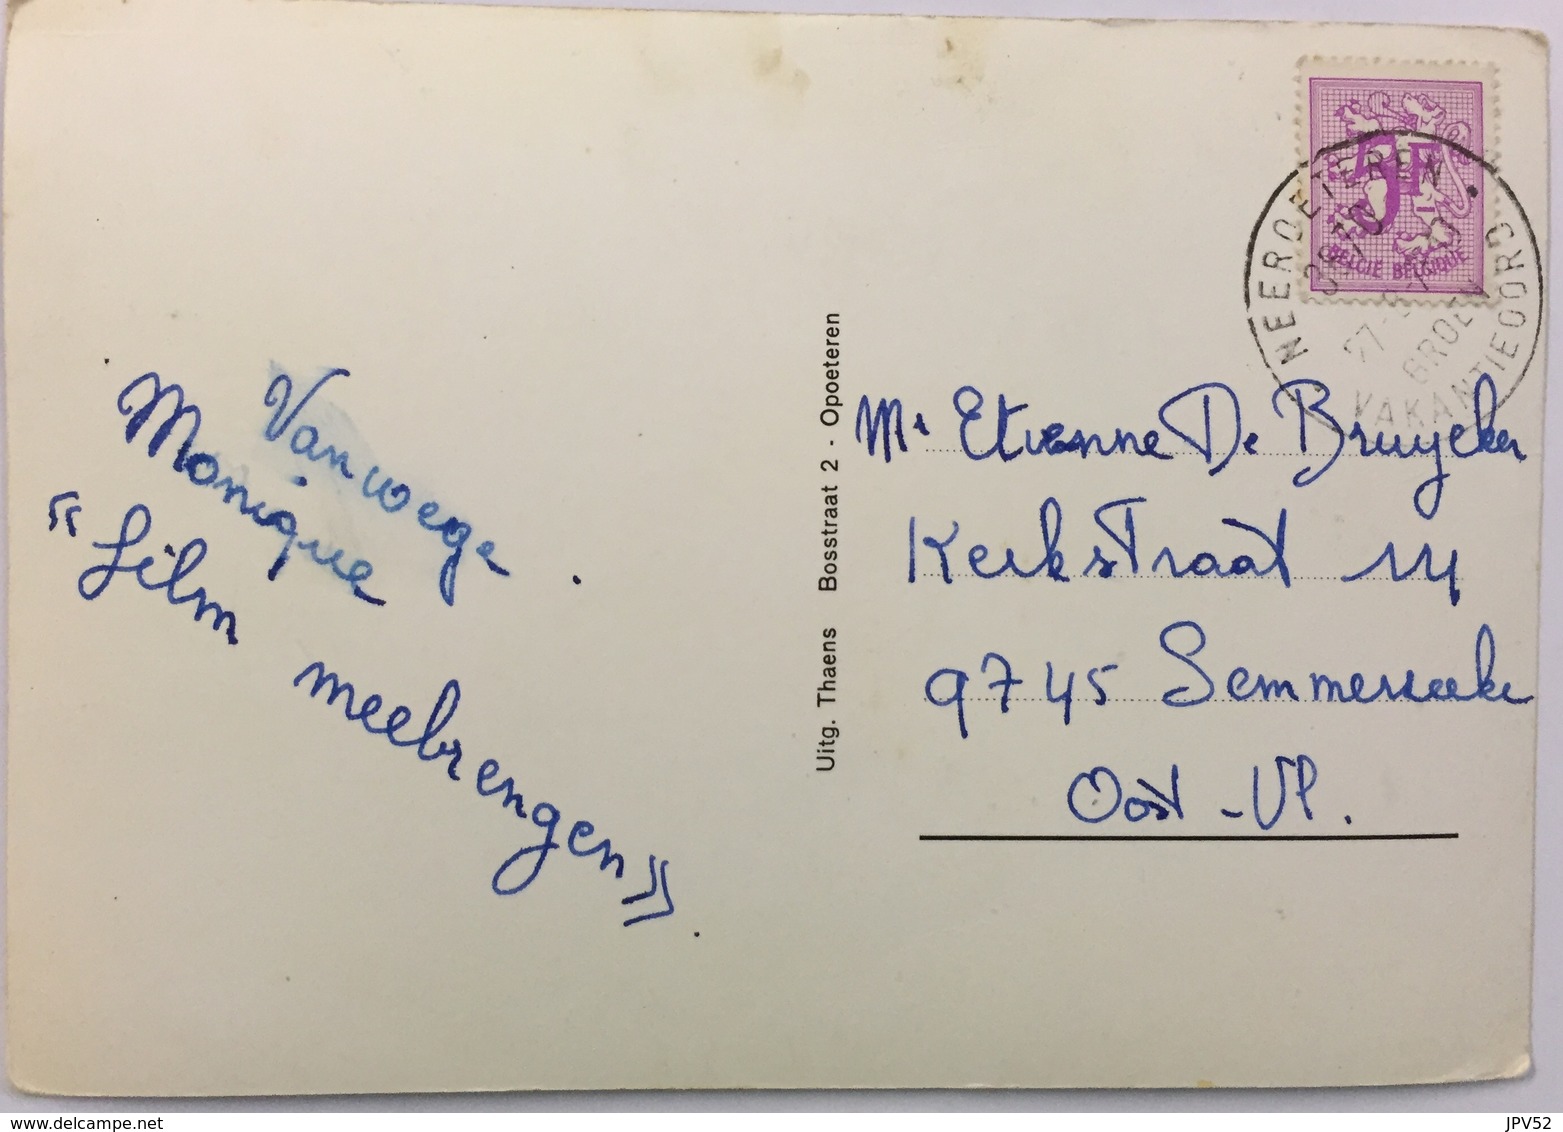 Vanwege
Monique
"film meebrengen"
Uitg. Thaens Bosstraat 2 - Opoeteren
5F
BELGIË BELGIQUE
NEEROETEREN
GROEN
VAKANTIEOORD
Mr Etienne De Bruycker
Kerkstraat 114
9745 Semmerzake
Oost-Vl.
www.delcampe.net
JPV52